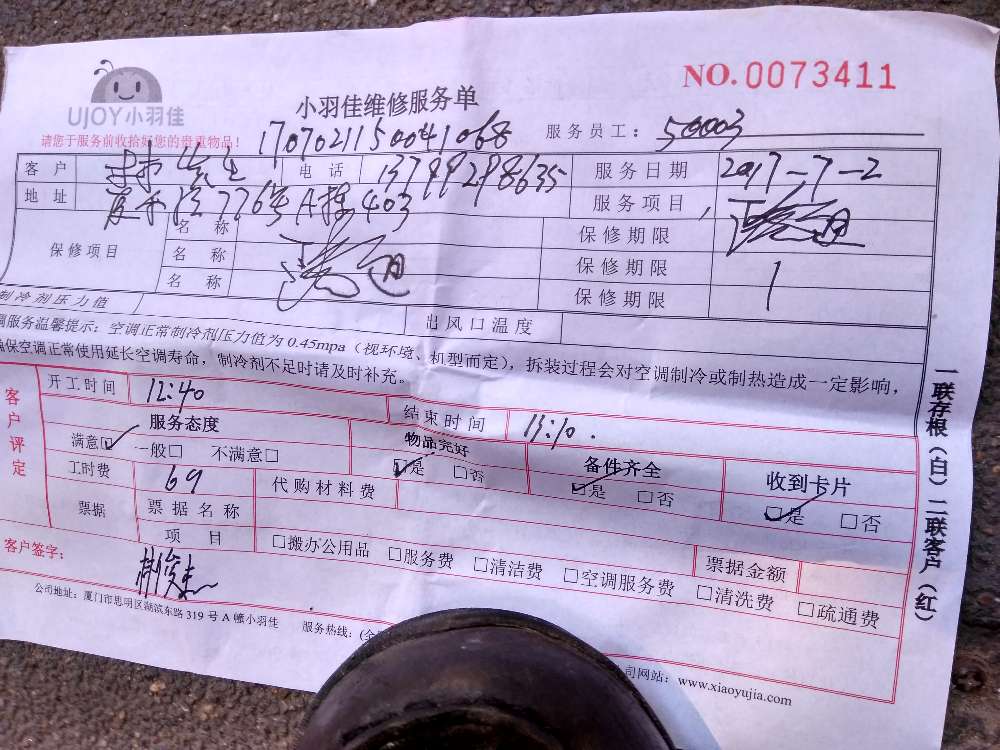 UJOY小羽佳
NO. 0073411
小羽佳维修服务单
请您于服务前收拾好您的贵重物品!
1707021150041068
服务员工: 50003
客户 林先生 电话 13799298635 服务日期 2017-7-2
地址 776号A栋403 服务项目
保修项目 名称 保修期限
名称 保修期限
名称 保修期限
制冷剂压力值 出风口温度
调服务温馨提示: 空调正常制冷剂压力值为 0.45mpa (视环境、机型而定), 拆装过程会对空调制冷或制热造成一定影响,
确保空调正常使用延长空调寿命, 制冷剂不足时请及时补充。
客户评定
开工时间 12:40 结束时间 13:10.
服务态度 物品完好 备件齐全 收到卡片
满意☑ 一般□ 不满意□ ☑是 □否 ☑是 □否 ☑是 □否
工时费 69 代购材料费
票据 票据名称
项目 □搬办公用品 □服务费 □清洁费 □空调服务费 □清洗费 □疏通费
票据金额
客户签字:
公司地址: 厦门市思明区湖滨东路 319 号 A 幢小羽佳 服务热线: (全
司网站: www.xiaoyujia.com
一联存根(白) 二联客户(红)